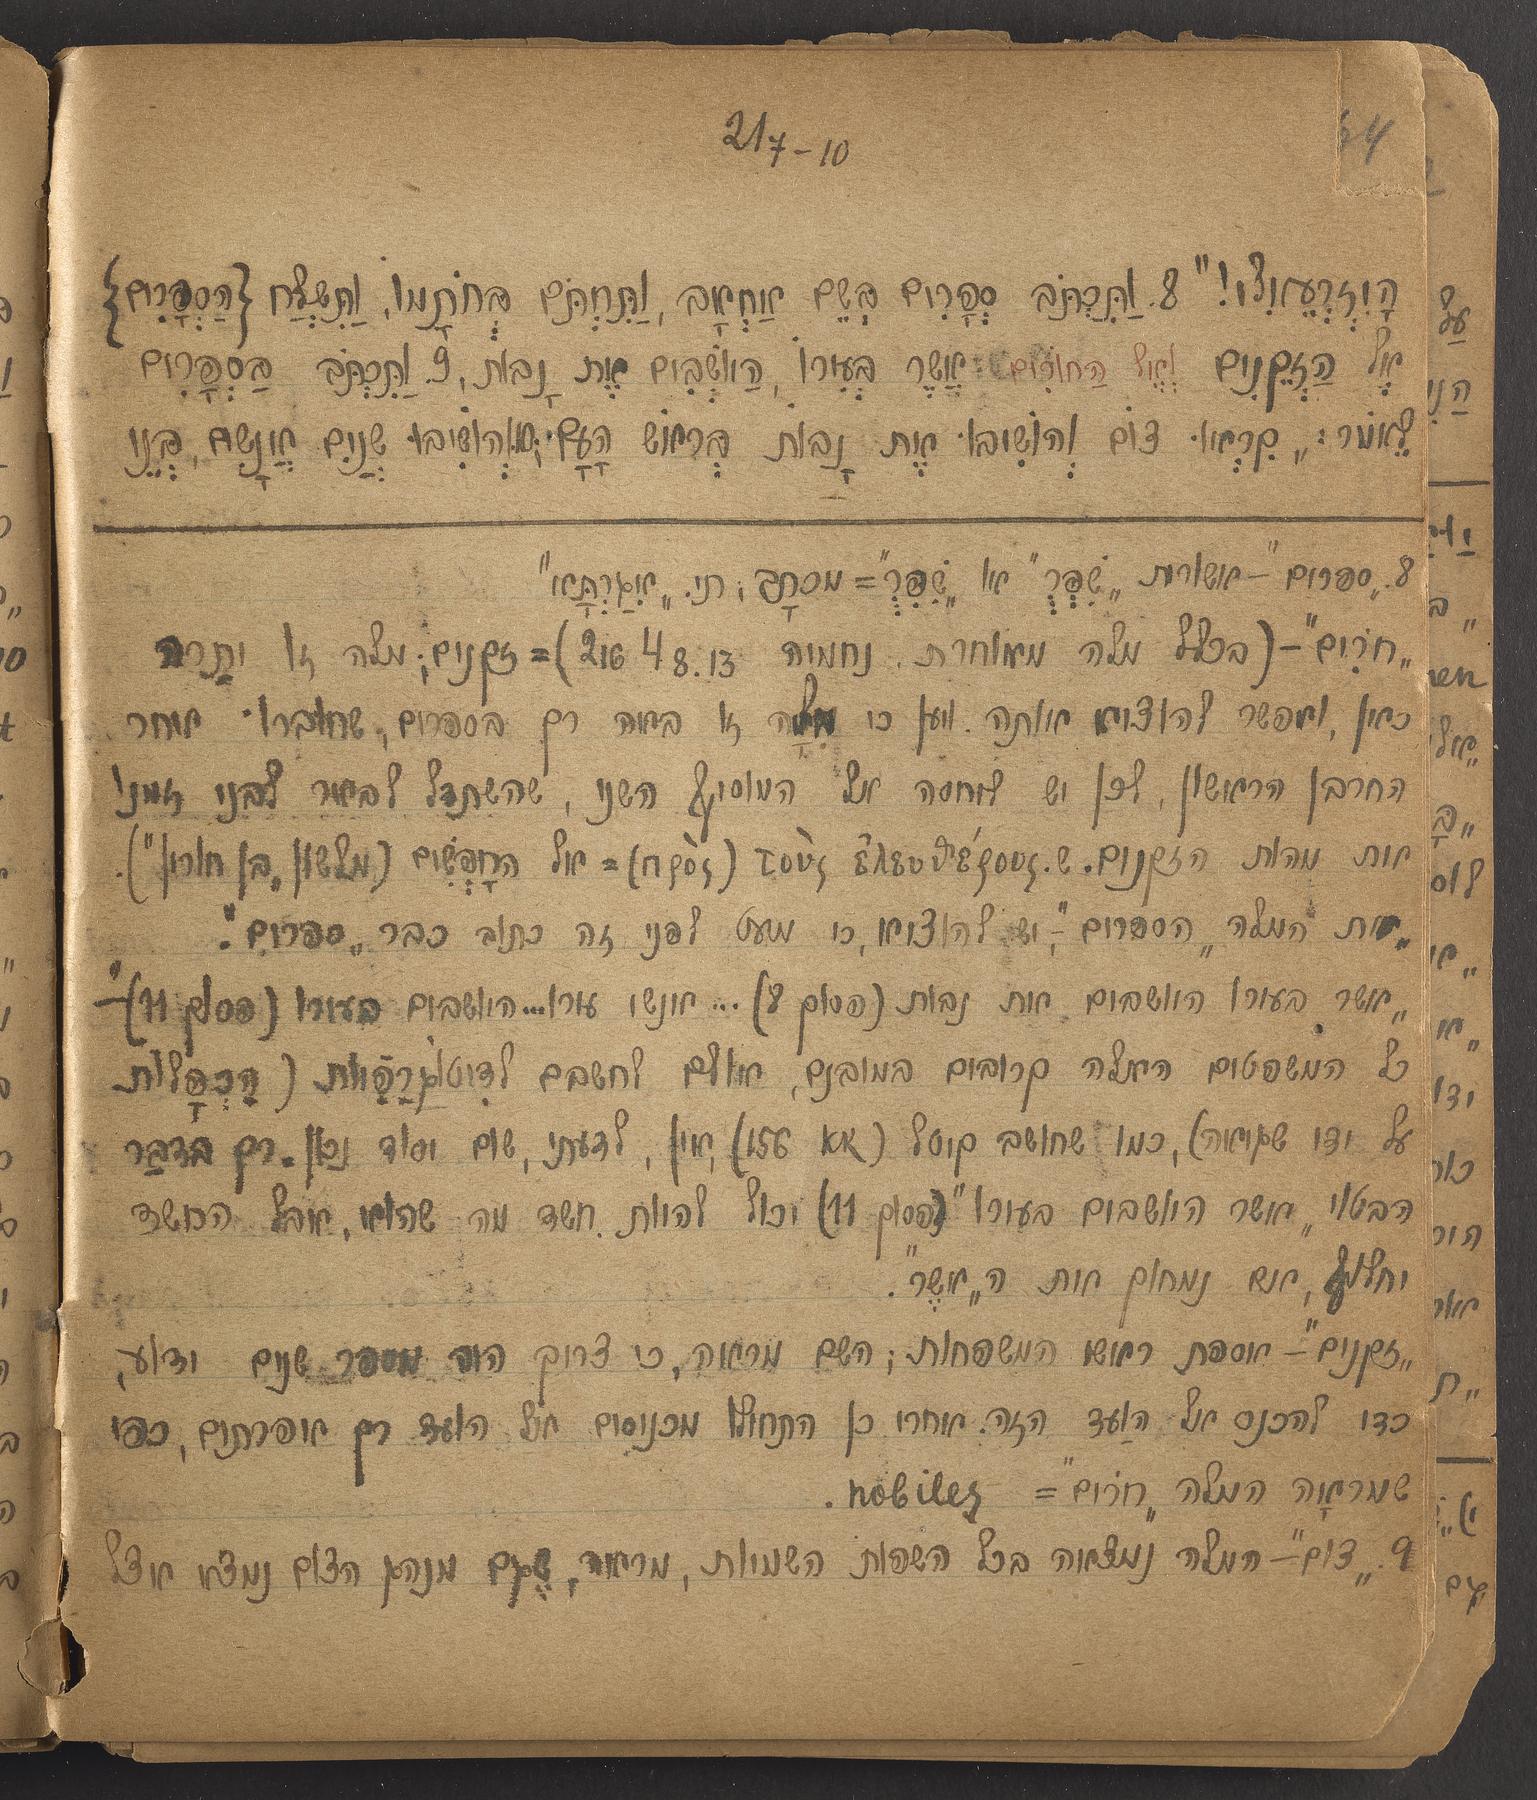 21 7-10
64
הַיִּזְרְעֵאלִי!" 8. וַתִּכְתֹּב סְפָרִים בְּשֵׁם אַחְאָב, וַתַּחְתֹּם בְּחֹתָמוֹ, וַתִּשְׁלַח {הַסְּפָרִים}
אֶל הַזְּקֵנִים וְאֶל הַחוֹרִים אֲשֶׁר בְּעִירוֹ, הַיּשְׁבִים אֶת נָבוֹת, 9. וַתִּכְתֹּב בַּסְּפָרִים
לֵאמֹר: "קִרְאוּ צוֹם וְהוֹשִׁיבוּ אֶת נָבוֹת בְּרֹאשׁ הָעָם; 10. וְהוֹשִׁיבוּ שְׁנַיִם אֲנָשִׁים, בְּנֵי
8. "ספרים" – אשורית "שִׁפְּרְ" או "שִׁפִּרְ" = מכתָב; תי. "אִגַּרְתָּא"
"חֹרִים" – (בכלל מלה מאוחרת. נחמיה 2 16 4 8.13) = זקנים; מלה זו יתֵרה
כאן, ואפשר להוציא אותה. ויען כי מלָה זו באה רק בספרים, שחוברו אחר
החרבן הראשון, לכן יש ליחסה אל המוסיף השני, שהשתדל לבאר לבני זמנו
את מהות הזקנים. ש. τοὺς ἐλευθέρους (πρὸς) = אל החָפְשִׁים (מלשון "בן חורין").
"את המלה "הספרים" יש להוציא, כי מעט לפני זה כתוב כבר "ספרים".
"אשר בעירו היושבים את נבות (פסוק 8) ... אנשי עירו... היושבים בעירו (פסוק 11)" –
כל המשפטים האלה קרובים במובנם, אולם לחשבם לדִיטוֹגְרַפִיות (הַכְפָּלות
על ידי שגיאה), כמו שחושב קיטל (KK 156), אין, לדעתי, שום יסוד נכון. רק בדבַר
הבטוי "אשר היושבים בעירו" (פסוק 11) יכול להיות חשד מה שהוא, אבל החשד
יחלוף, אם נמחוק את ה"אשֶר".
"זקנים" – אוספת ראשי המשפחות; השם מראה, כי צרוך היה מספר שנים ידוע,
כדי להכנס אל הוַעד הזה. אחרי כן התחילו מכניסים אל הועד רק אפרתים, כפי
שמראָה המלה "חֹרים" = nobiles.
9. "צום" – המלה נמצאה בכל השפות השמיות, מראה, שֶגם מנהג הצום נמצא אצל